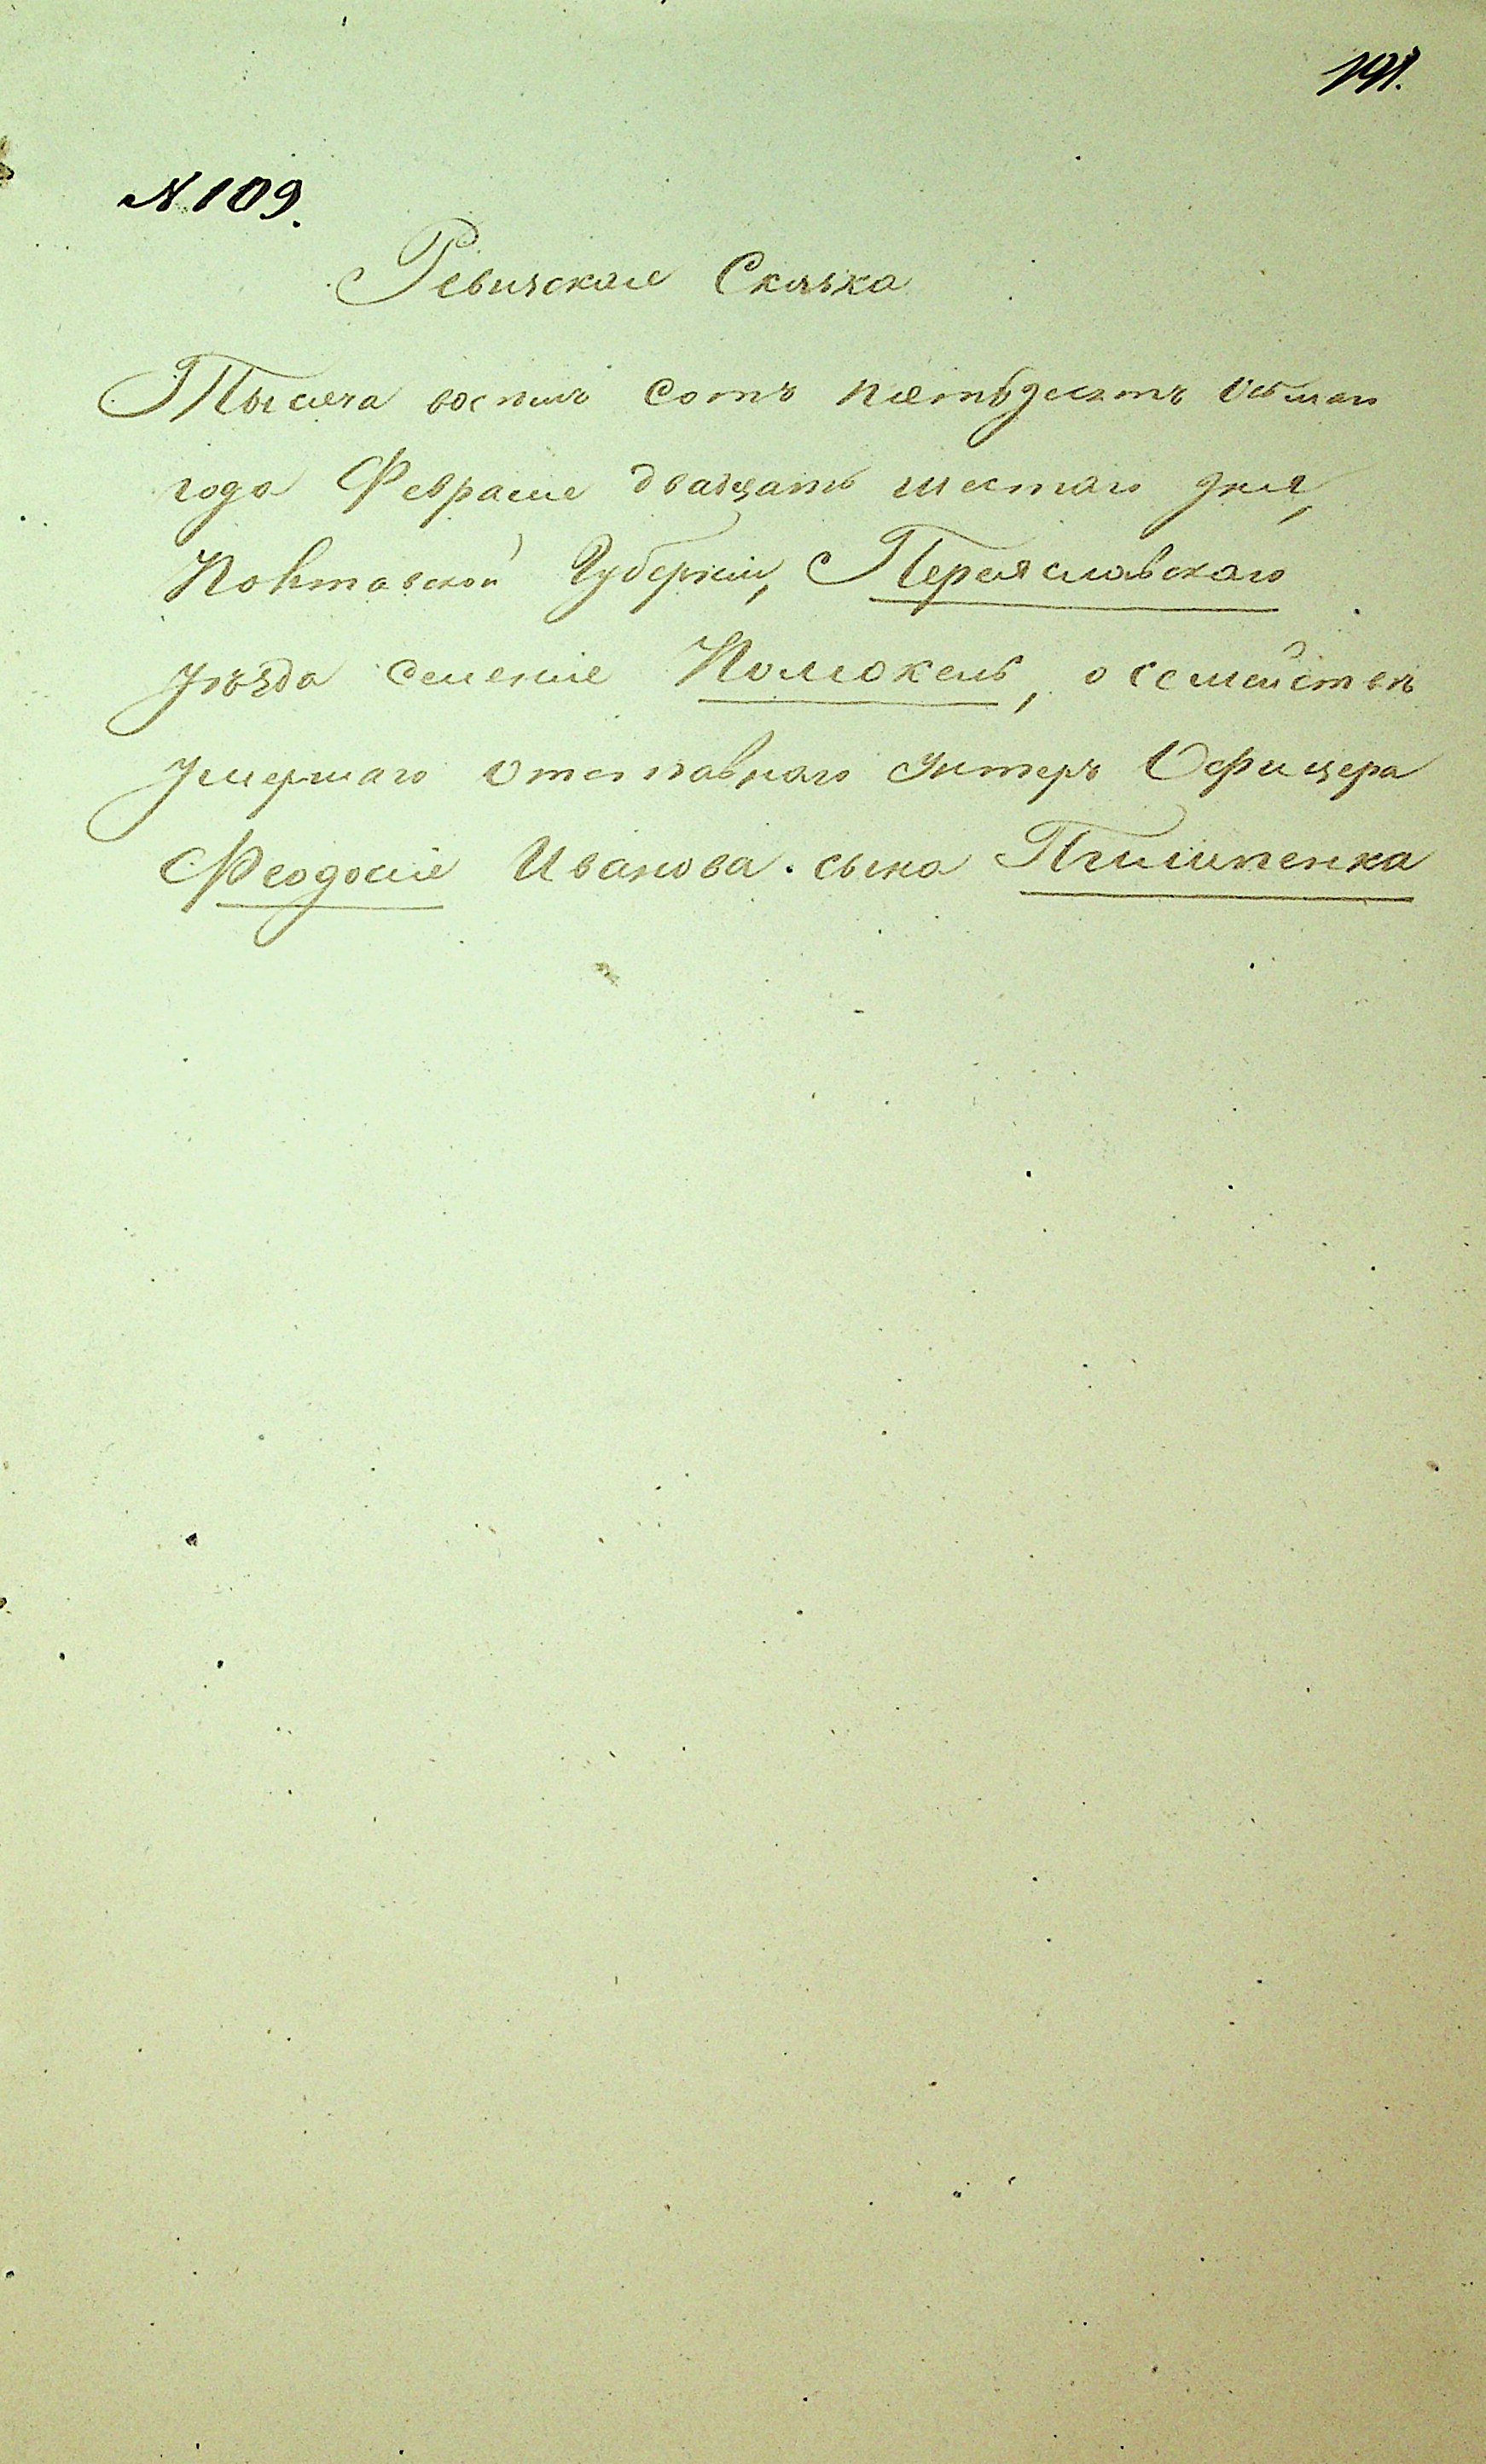 191.
N. 109.
Ревизская Сказка
Тысяча восемь сотъ пятьдесятъ осьмаго
года Февраля двадцать шестаго дня,
Полтавской Губерніи, Переяславскаго
уѣзда селеніе Помокель, о семействѣ
умершаго отставнаго Унтеръ Офицера
Феодосія Иванова сына